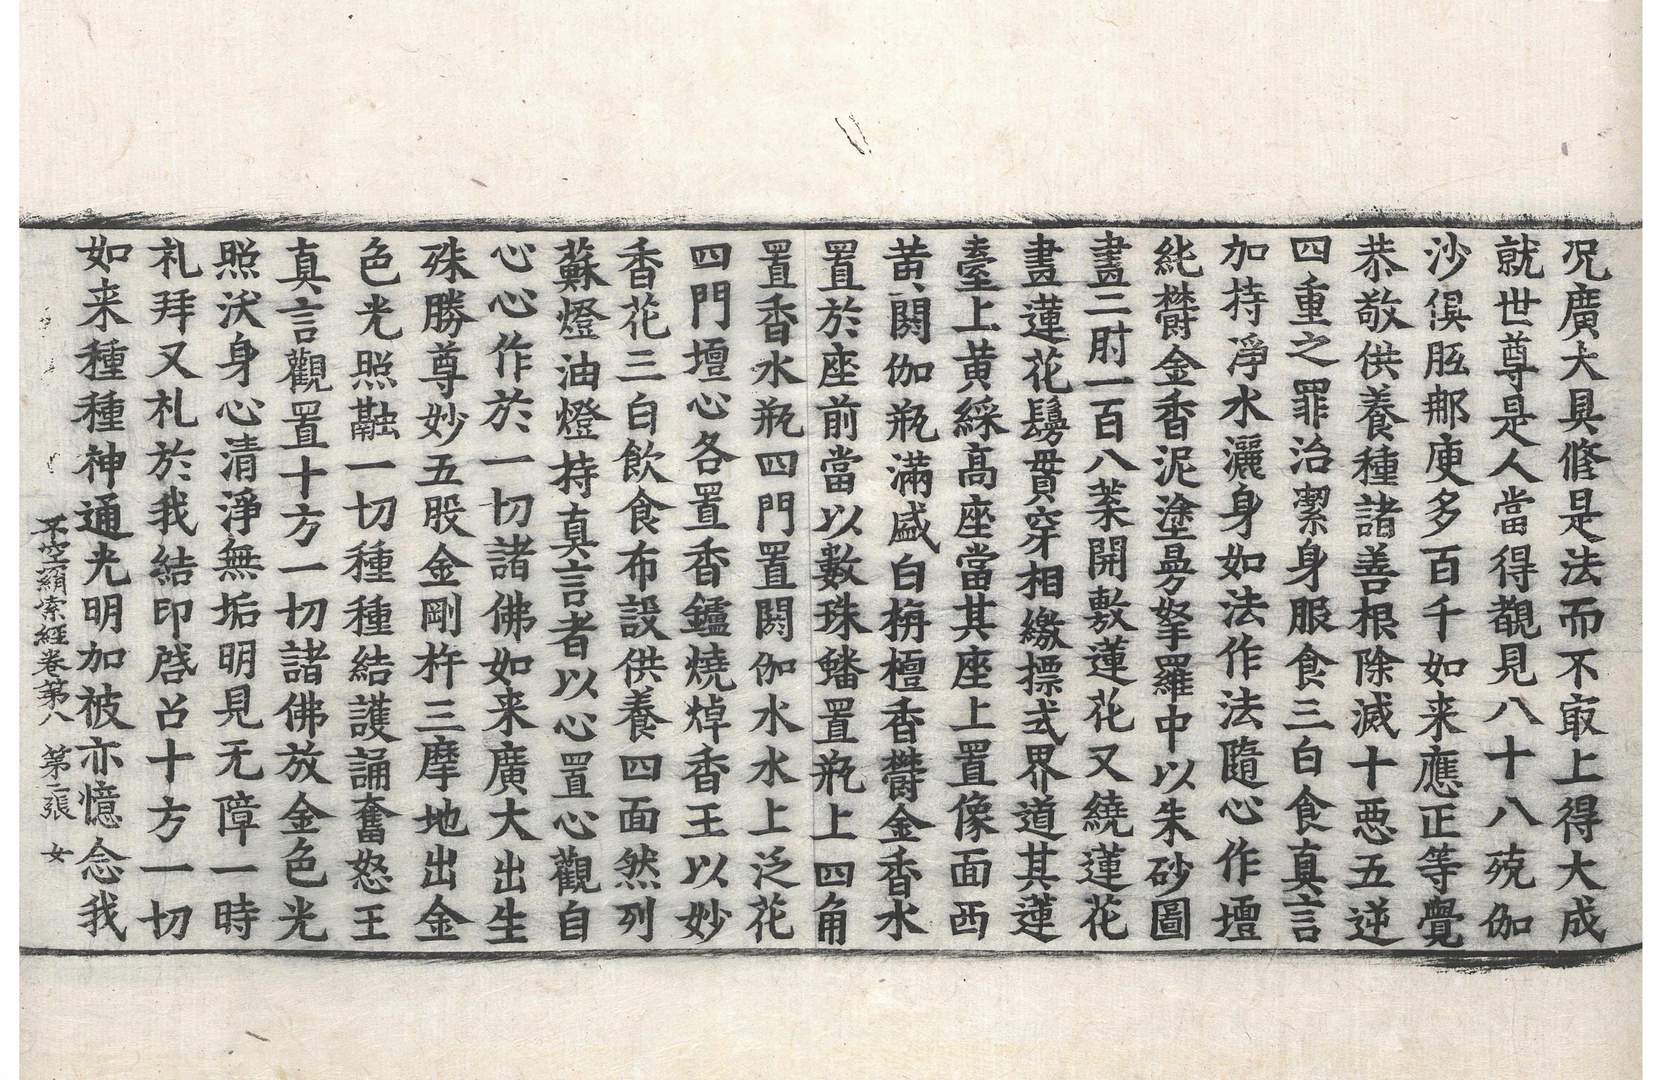 况廣大具修是法而不㝡上得大成
就世尊是人當得覩見八十八殑伽
沙俱胝那庾多百千如来應正等覺
恭敬供養種諸善根除滅十惡五逆
四重之罪治潔身服食三白食真言
加持淨水灑身如法作法隨心作壇
純欝金香泥塗曼拏羅中以朱砂圖
畫二肘一百八葉開敷蓮花又繞蓮花
畫蓮花鬘貫穿相繳摽式界道其蓮
臺上黃綵髙座當其座上置像面西
黃閼伽瓶滿盛白栴檀香欝金香水
置於座前當以數珠蟠置瓶上四角
置香水瓶四門置閼伽水水上泛花
四門壇心各置香鑪燒焯香王以妙
香花三白飲食布設供養四面然列
蘇燈油燈持真言者以心置心觀自
心心作於一切諸佛如来廣大出生
殊勝尊妙五股金剛杵三摩地出金
色光照融一切種種結護誦奮怒王
真言觀置十方一切諸佛放金色光
照沃身心清淨無垢明見无障一時
礼拜又礼於我結印啓召十方一切
如来種種神通光明加被亦憶念我
不空羂索經卷第八 第二張 女